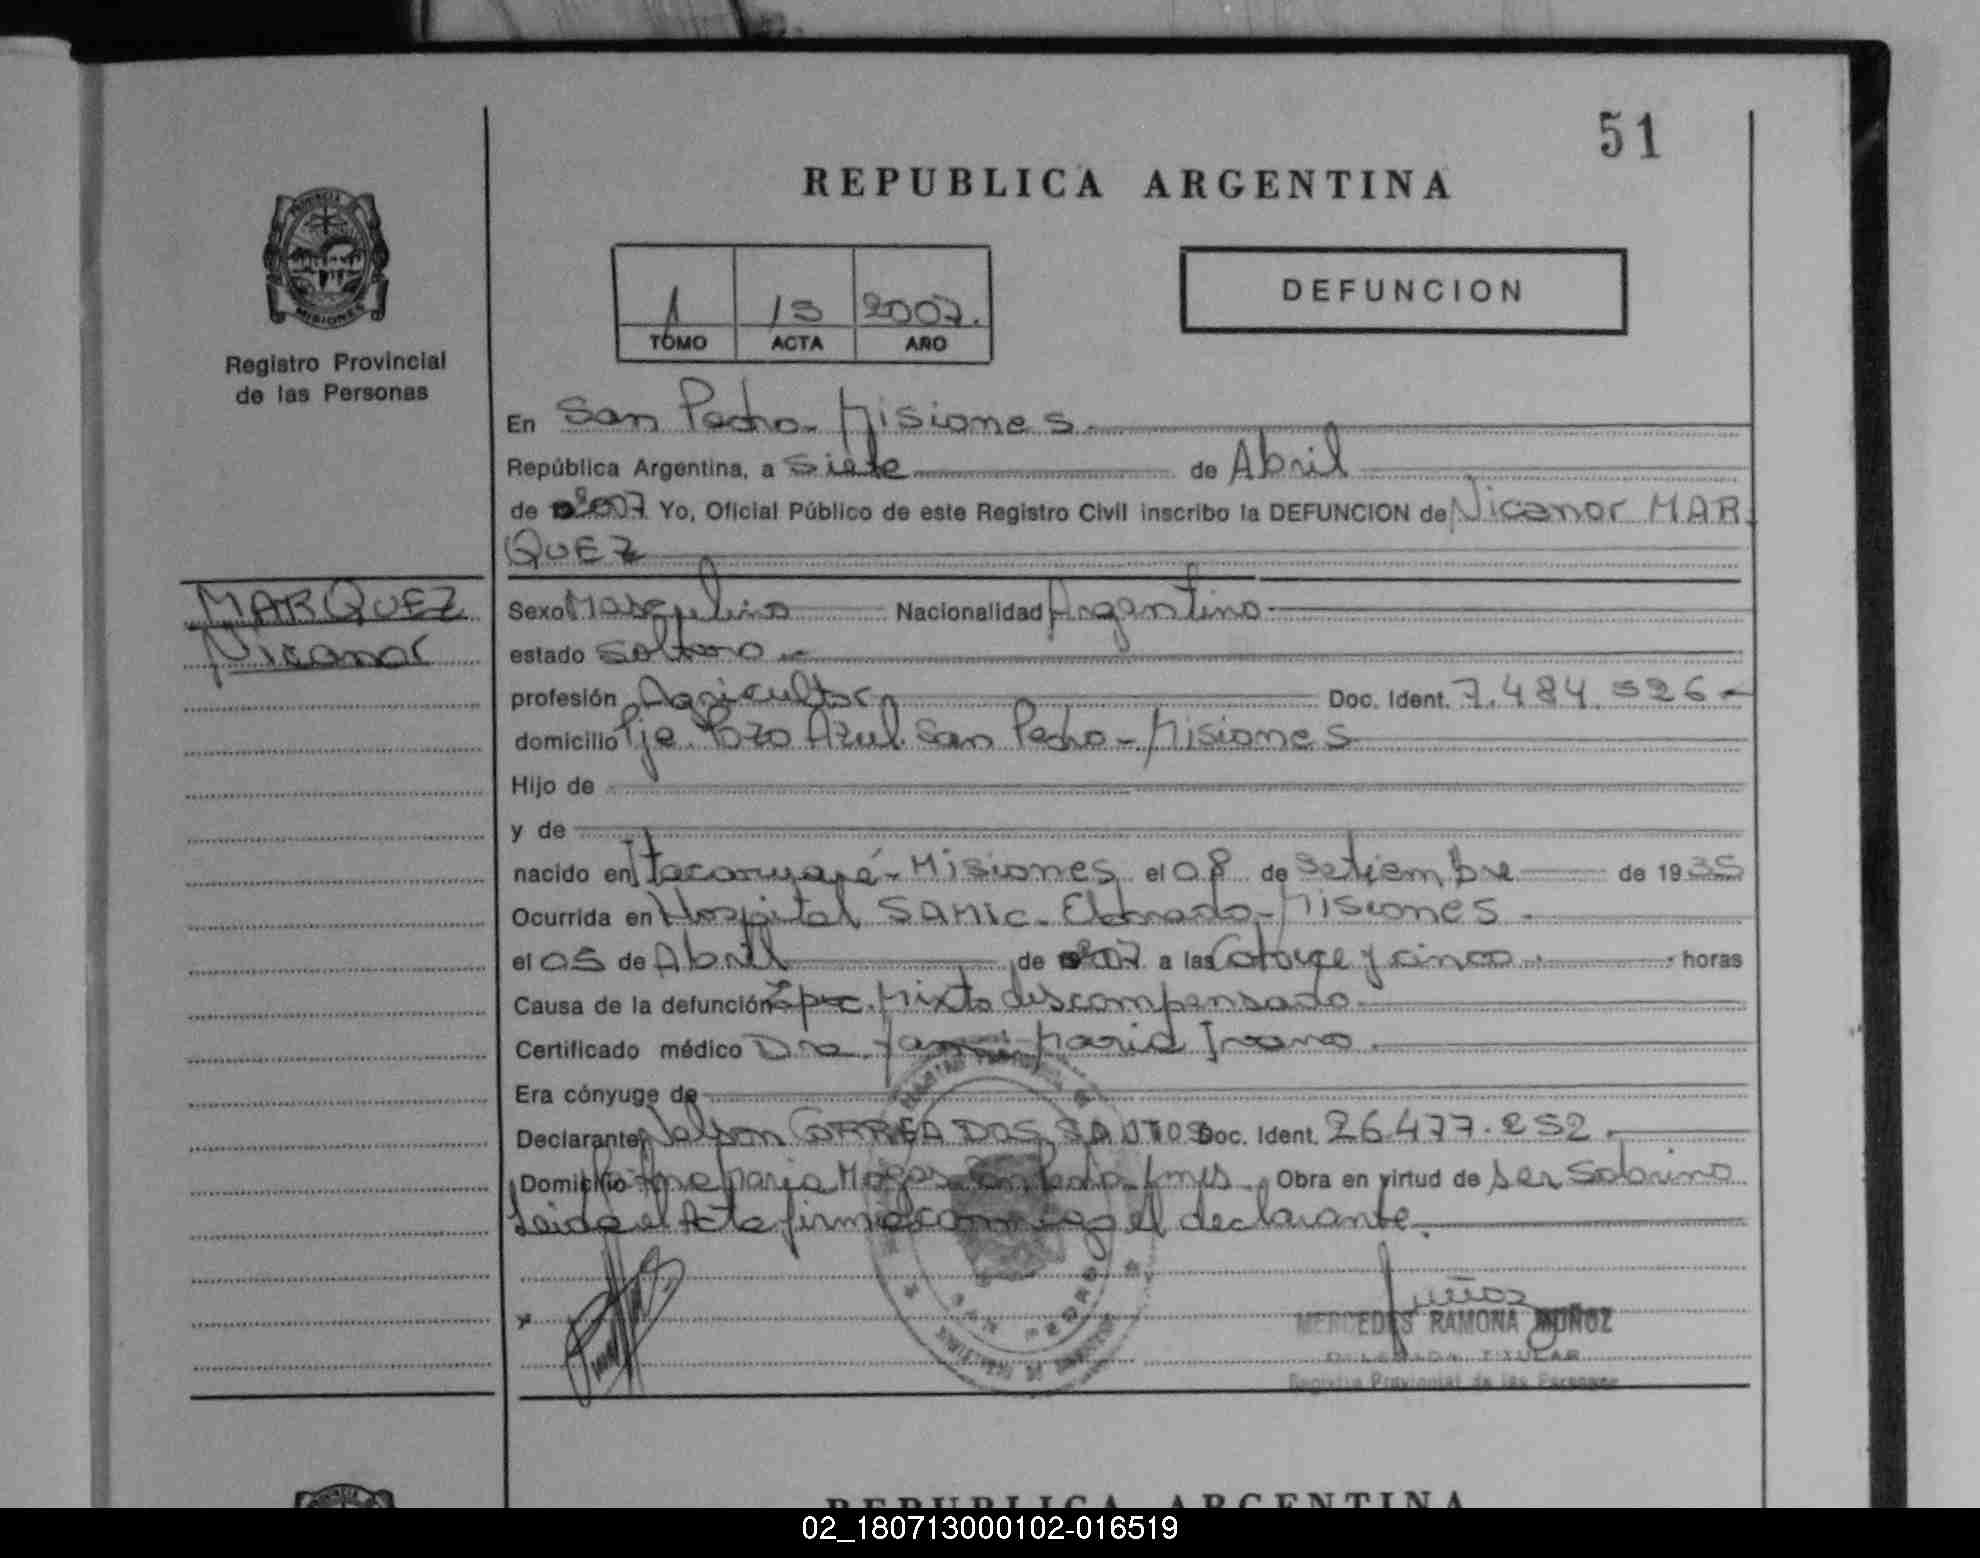 51
REPUBLICA ARGENTINA
DEFUNCION
1 13 2007.
TOMO ACTA AÑO
PROVINCIA DE
MISIONES
Registro Provincial
de las Personas
En San Pedro - Misiones
República Argentina, a Siete de Abril
de 2007 Yo, Oficial Público de este Registro Civil inscribo la DEFUNCION de Nicanor MAR-
QUEZ
MARQUEZ
Nicanor
Sexo Masculino Nacionalidad Argentino
estado Soltero
profesión Agricultor Doc. Ident. 7.484.526
domicilio Pje. Pozo Azul. San Pedro - Misiones
Hijo de
y de
nacido en Itacaruaré - Misiones el 08 de Setiembre de 1935
Ocurrida en Hospital SAMIC - Eldorado - Misiones
el 05 de Abril de 2007 a las Catorce y cinco horas
Causa de la defunción Mixto descompensado
Certificado médico Dra. María
Era cónyuge de
Declarante Nelson CORREA DOS SANTOS Doc. Ident. 26.477.252
Domicilio San Pedro - Mnes Obra en virtud de ser Sobrino
Leida el Acta firma conmigo el declarante
x
Muñoz
MERCEDES RAMONA MUÑOZ
DELEGADA TITULAR
Registro Provincial de las Personas
REPUBLICA ARGENTINA
02_180713000102-016519